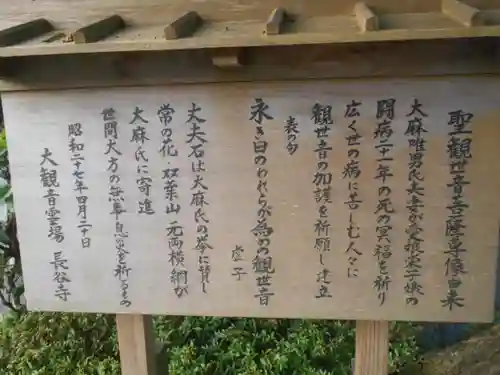 聖観世音菩薩尊像由来
大麻唯男氏夫妻が愛娘栄子嬢の
闘病二十一年の死の冥福を祈り
広く世の病に苦しむ人々に
観世音の加護を祈願し建立
表の句
永き日のわれらが為の観世音
虚子
丈夫石は大麻氏の挙に賛し
常の花 双葉山 元両横綱が
大麻氏に寄進
世間大方の無事息災を祈るもの
昭和二十七年四月二十日
大観音霊場 長谷寺